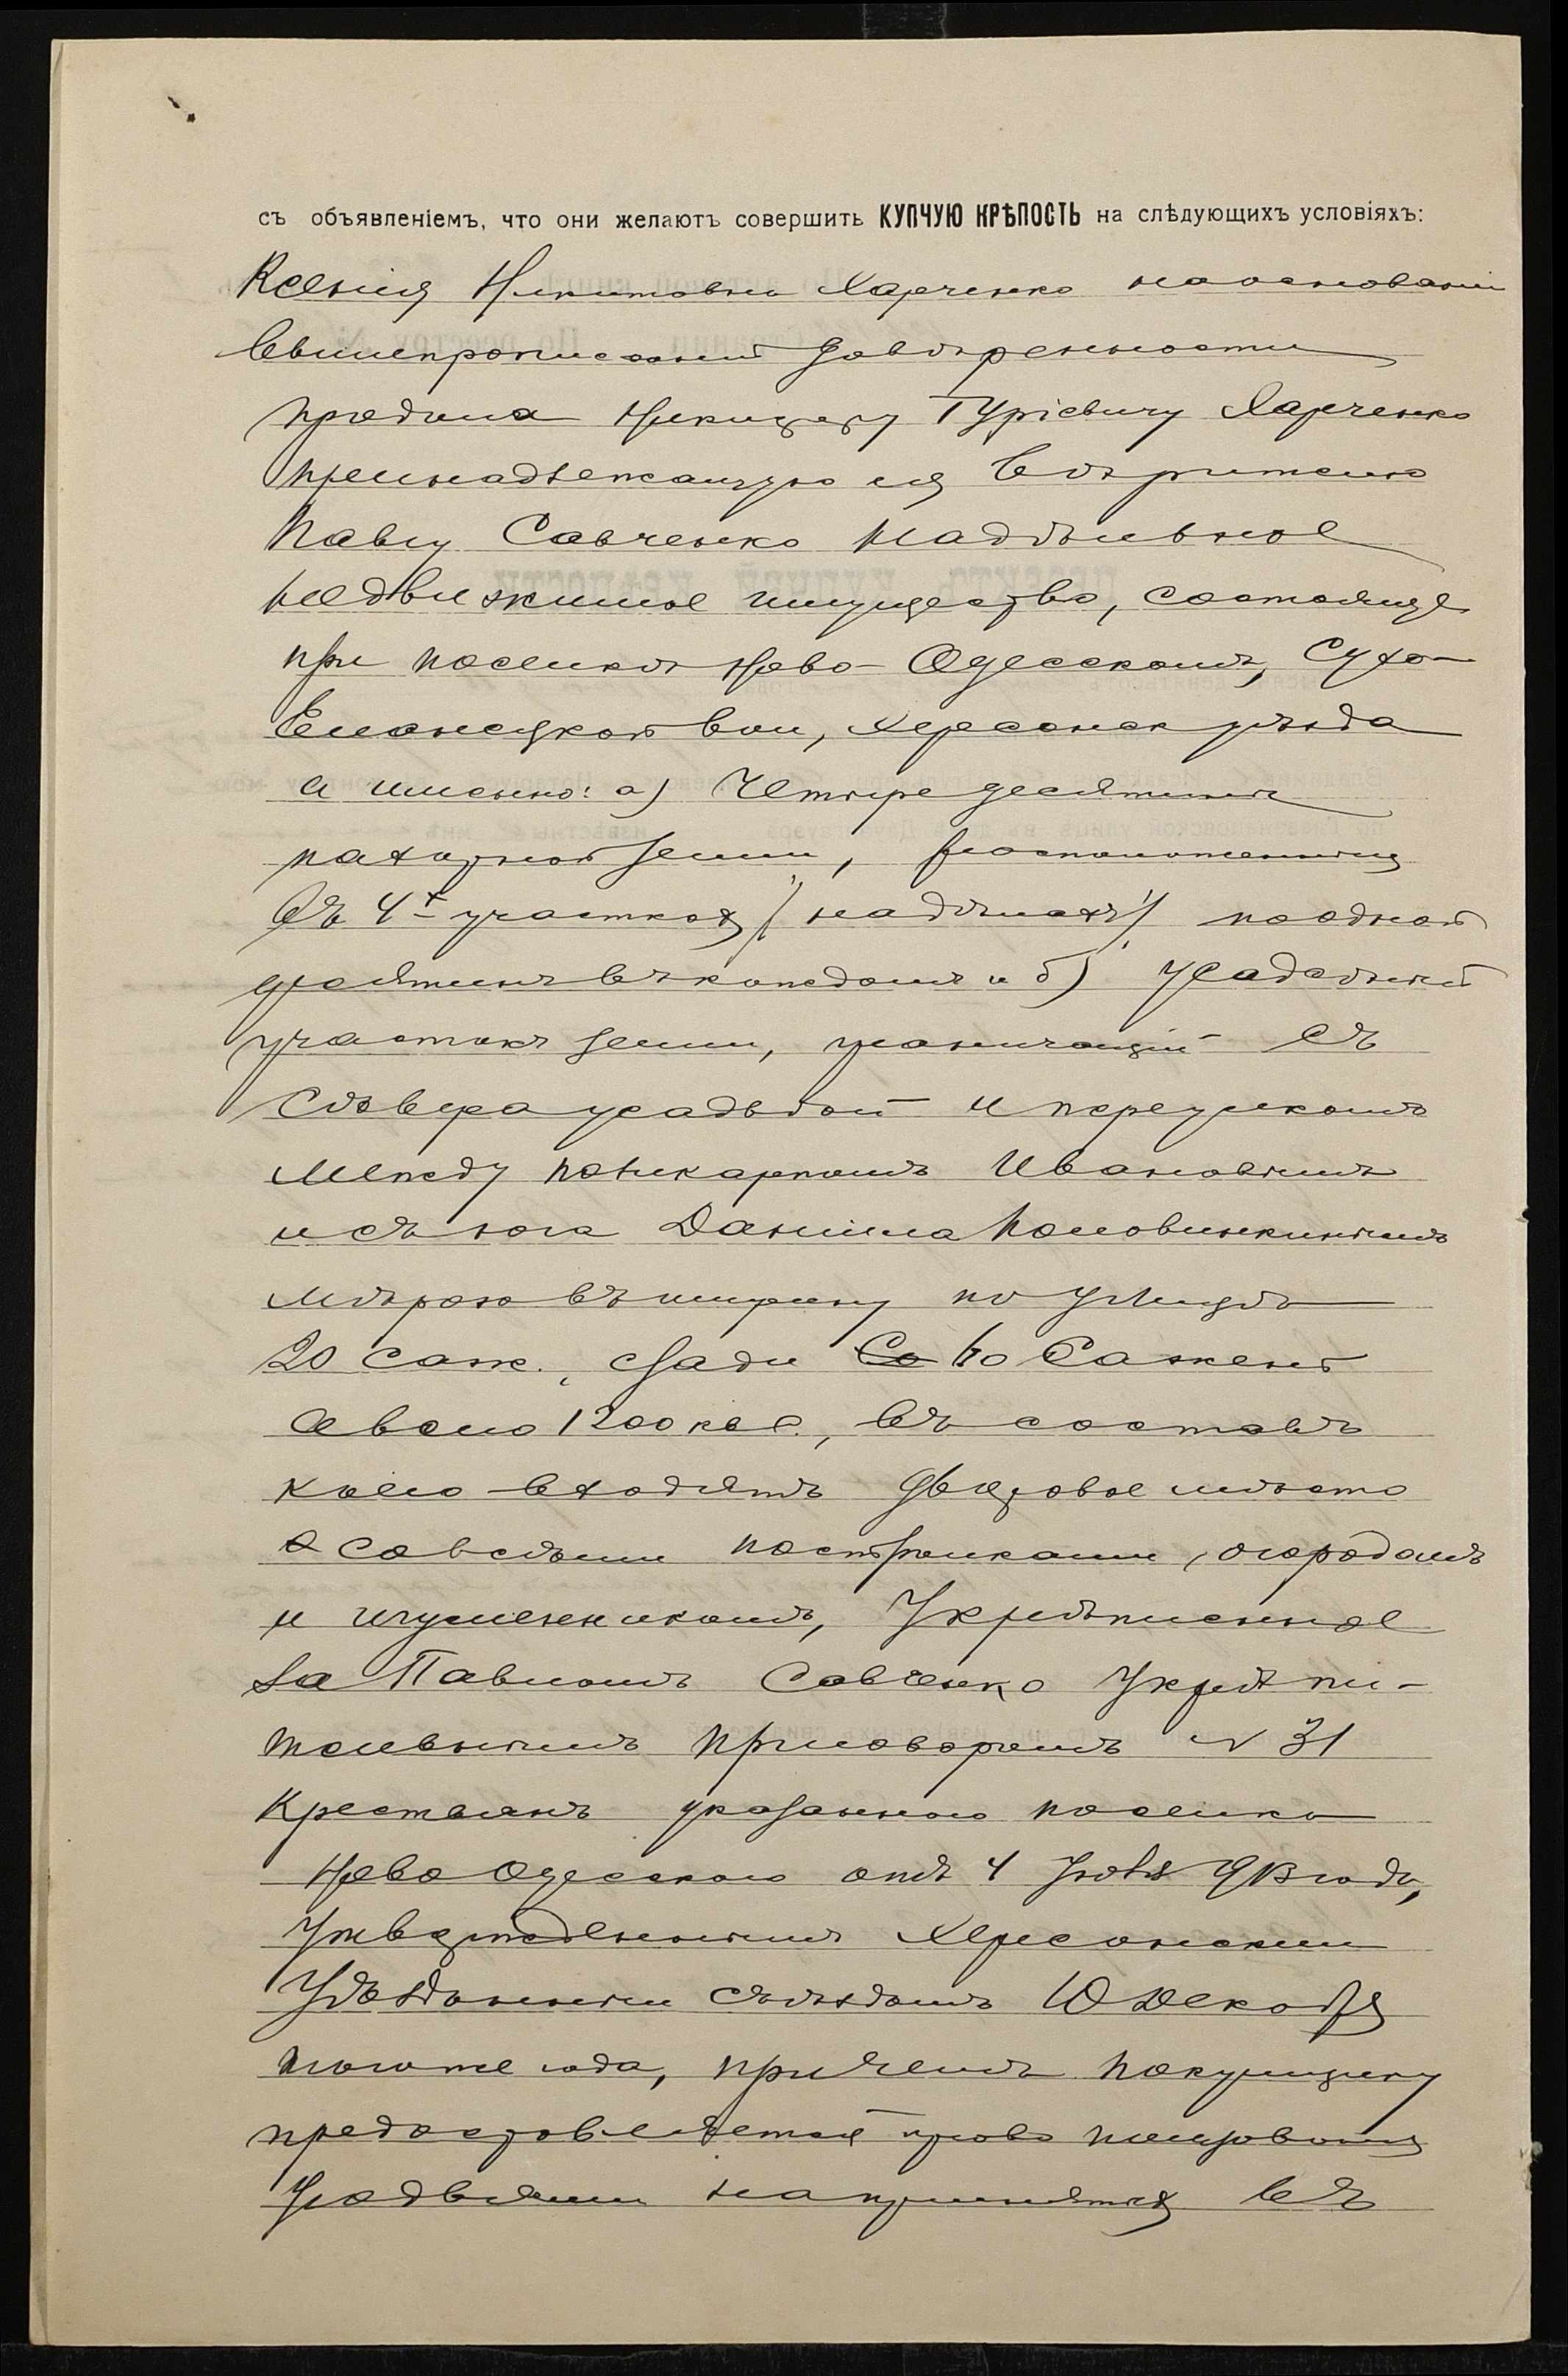 съ объявленіемъ, что они желаютъ совершить КУПЧУЮ КРѢПОСТЬ на слѣдующихъ условіяхъ:
Ксенія Никитовна Харченко на основаніи
вышепрописанной довѣренности
продала Никифору Гурієвичу Харченко
принадлежащую ея вѣрителю
Павлу Савченко надѣльное
недвижимое имущество, состоящее
при поселкѣ Ново-Одесскомъ, Сухо-
Еланецкой вол, Херсонск уѣзда
а именно: а) четыре десятины
пахотной земли, расположенныя
въ 4х участкахъ /надѣлахъ/ по одной
десятинѣ въ каждомъ и б) усадебный
участокъ земли, граничащій съ
сѣвера усадьбой и переулкомъ
между Поликарпомъ Ивановымъ
и съ юга Даніила Половинкинымъ
мѣрою въ ширину по улицѣ
20 саж., сзади Со 40 Саженъ
а всего 1200 кв с., въ составъ
коего входятъ дворовое мѣсто
со всѣми постройками, огородомъ
и игуменникомъ, Укрѣпленное
за Павломъ Савченко Укрѣпи-
тельнымъ приговоромъ № 31
Крестьянъ указаннаго поселка
Ново Одесскаго отъ 4 913 года,
Утвержденнымъ Херсонскимъ
Уѣзднымъ съѣздомъ 10 Декабря
того же года, причемъ покупщику
предоставляется право пользованія
угодьями на принятыхъ въ